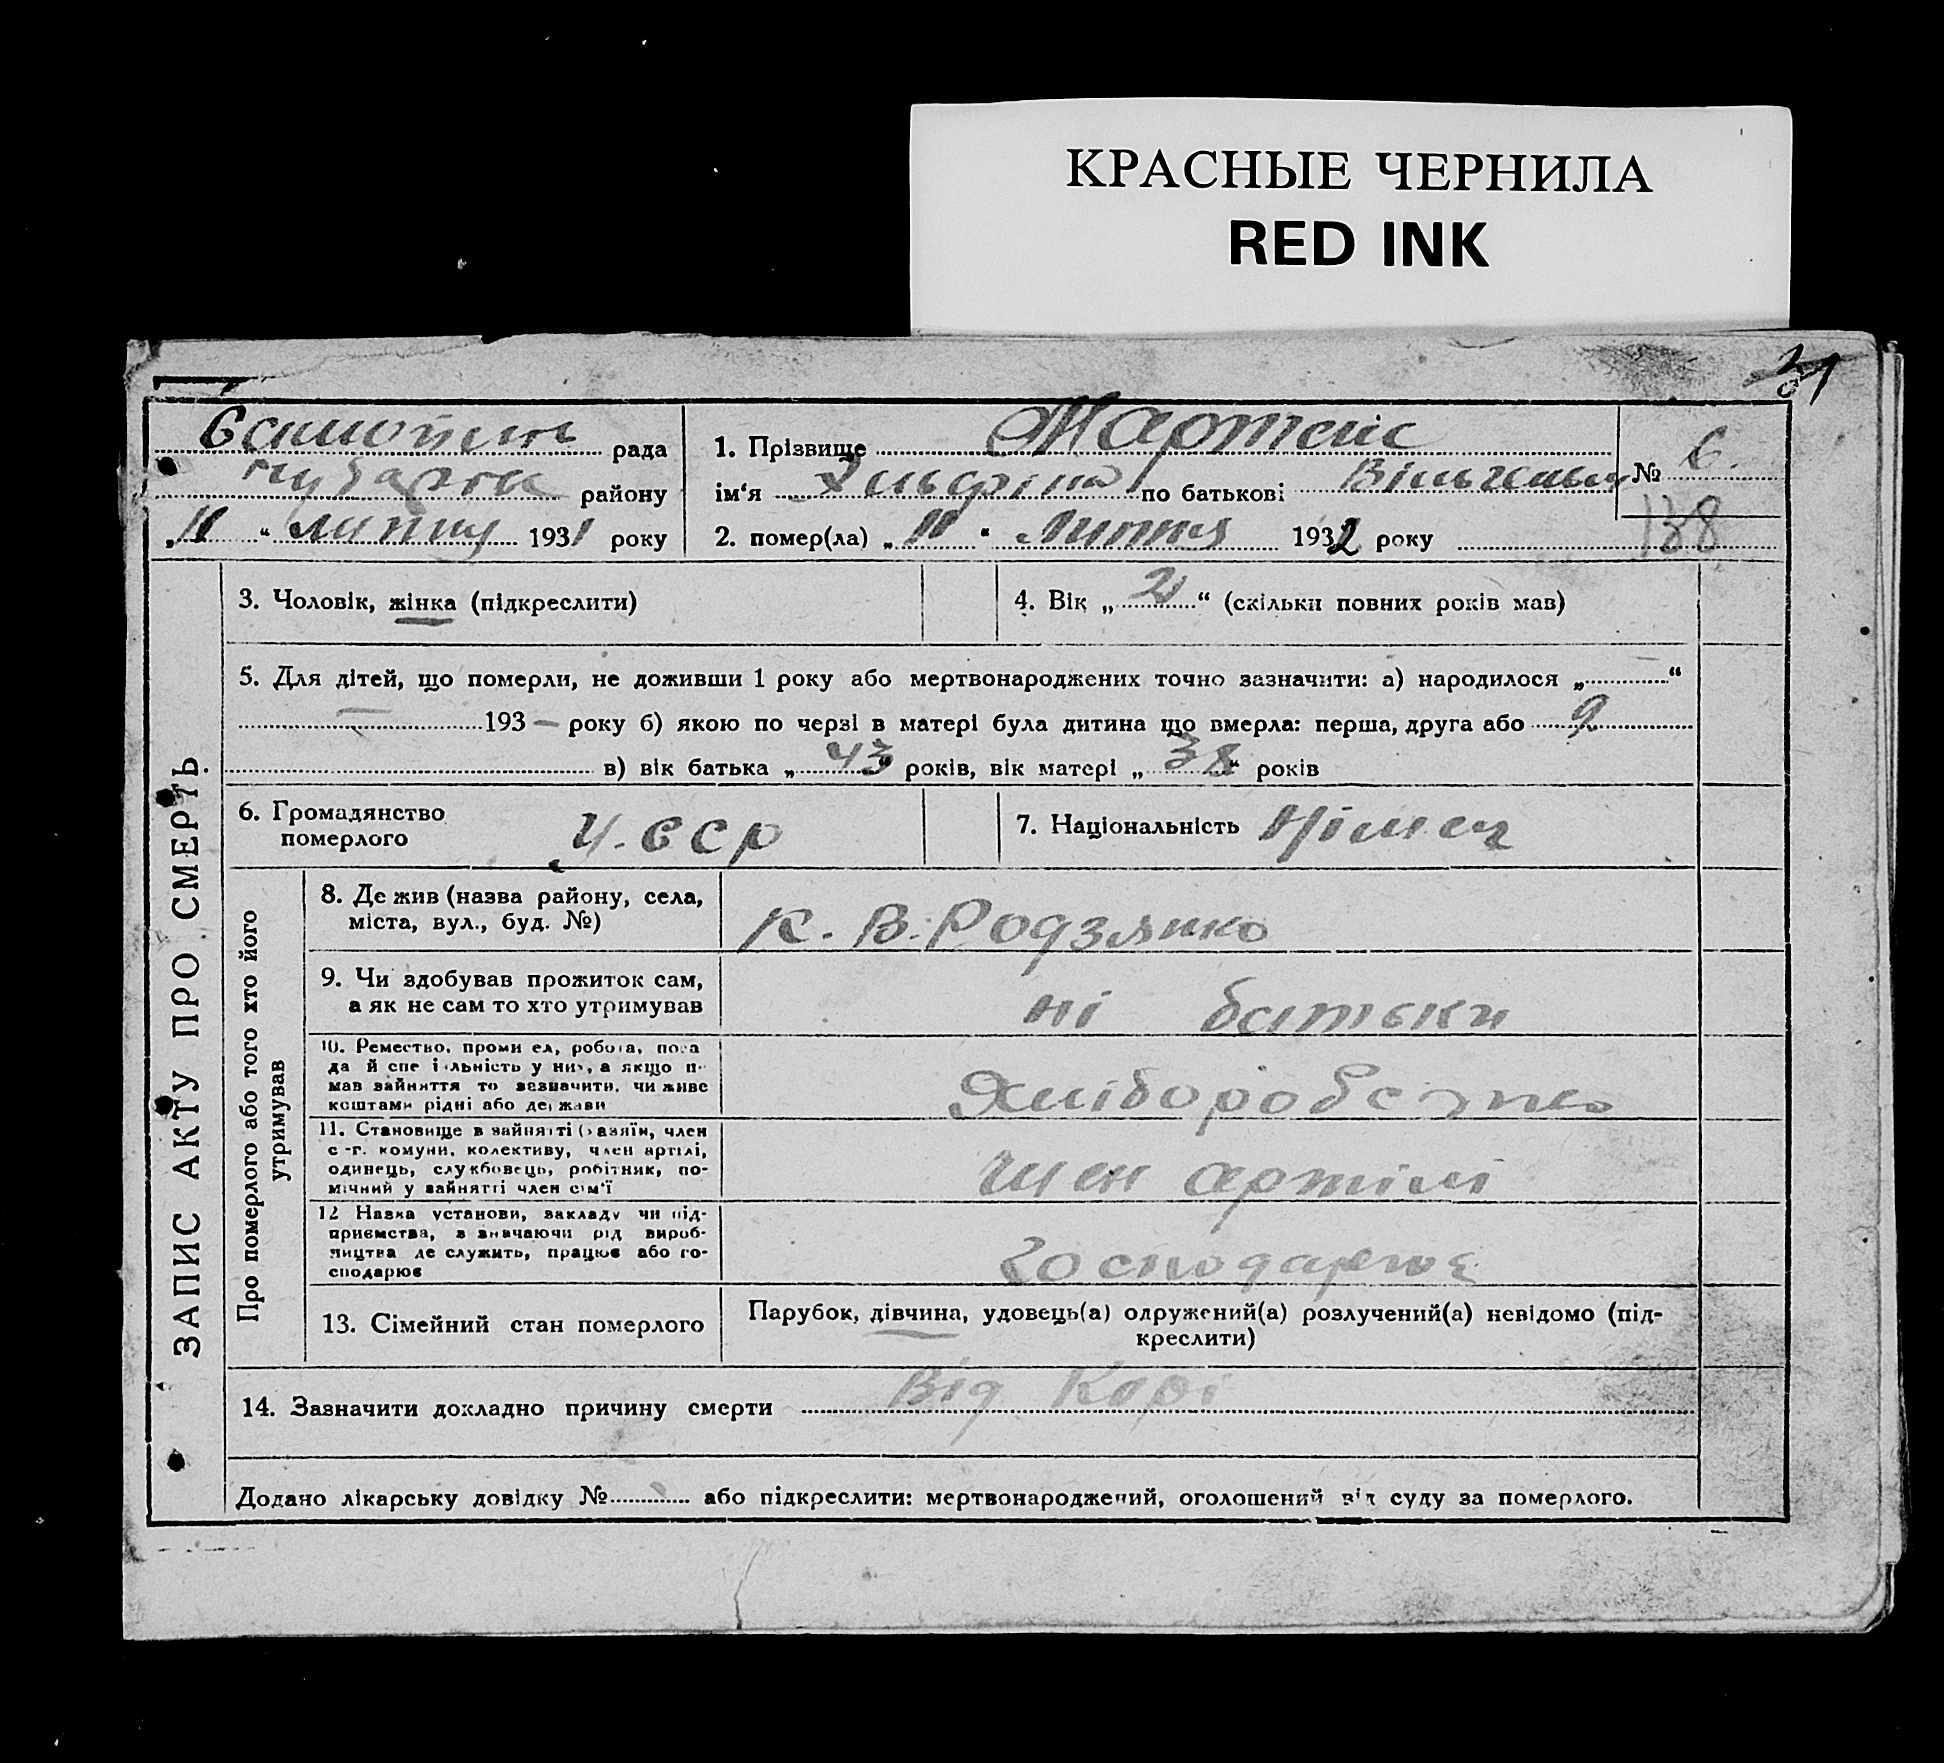 КРАСНЫЕ ЧЕРНИЛА
RED INK
31
рада
району
„11“ липня 1931 року
1. Прізвище Мартенс
ім‘я по батькові Вільгельм
2. помер(ла) „11“ Липня 1932 року
№ 6.
138
ЗАПИС АКТУ ПРО СМЕРТЬ.
3. Чоловік, жінка (підкреслити)
4. Вік „2“ (скільки повних років мав)
5. Для дітей, що померли, не доживши 1 року або мертвонароджених точно зазначити: а) народилося „ “
— 193 — року б) якою по черзі в матері була дитина що вмерла: перша, друга або 9
в) вік батька „43“ років, вік матері „38“ років
6. Громадянство
померлого
У.ССР
7. Національність Німец
Про померлого або того хто його
утримував
8. Де жив (назва району, села,
міста, вул., буд. №)
К. В. Родзянко
9. Чи здобував прожиток сам,
а як не сам то хто утримував
ні батьки
10. Ремество, промисел, робота, поса
да й спеціяльність у них, а якщо н
мав зайняття то зазначити, чи живе
коштами рідні або держави
Хліборобство
11. Становище в зайнятті (хазяїн, член
с.-г. комуни, колективу, член артілі,
одинець, службовець, робітник, по-
мічний у зайнятті член сім‘ї
член артілі
12 Назва установи, закладу чи під-
приємства, зазначаючи рід вироб-
ництва де служить, працює або го-
сподарює
Господарює
13. Сімейний стан померлого
Парубок, дівчина, удовець(а) одружений(а) розлучений(а) невідомо (під-
креслити)
14. Зазначити докладно причину смерти Від Корі
Додано лікарську довідку № або підкреслити: мертвонароджений, оголошений від суду за померлого.